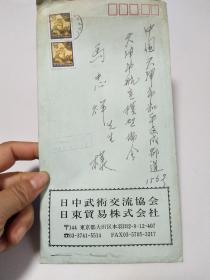 中国天津市和平区成都道
天津市航空模型協会
馬志祥 先生 様
日中武術交流協会
日東貿易株式会社
〒144 東京都大田区本羽田2-9-12-407
☎03-3741-5514 FAX03-5705-3217